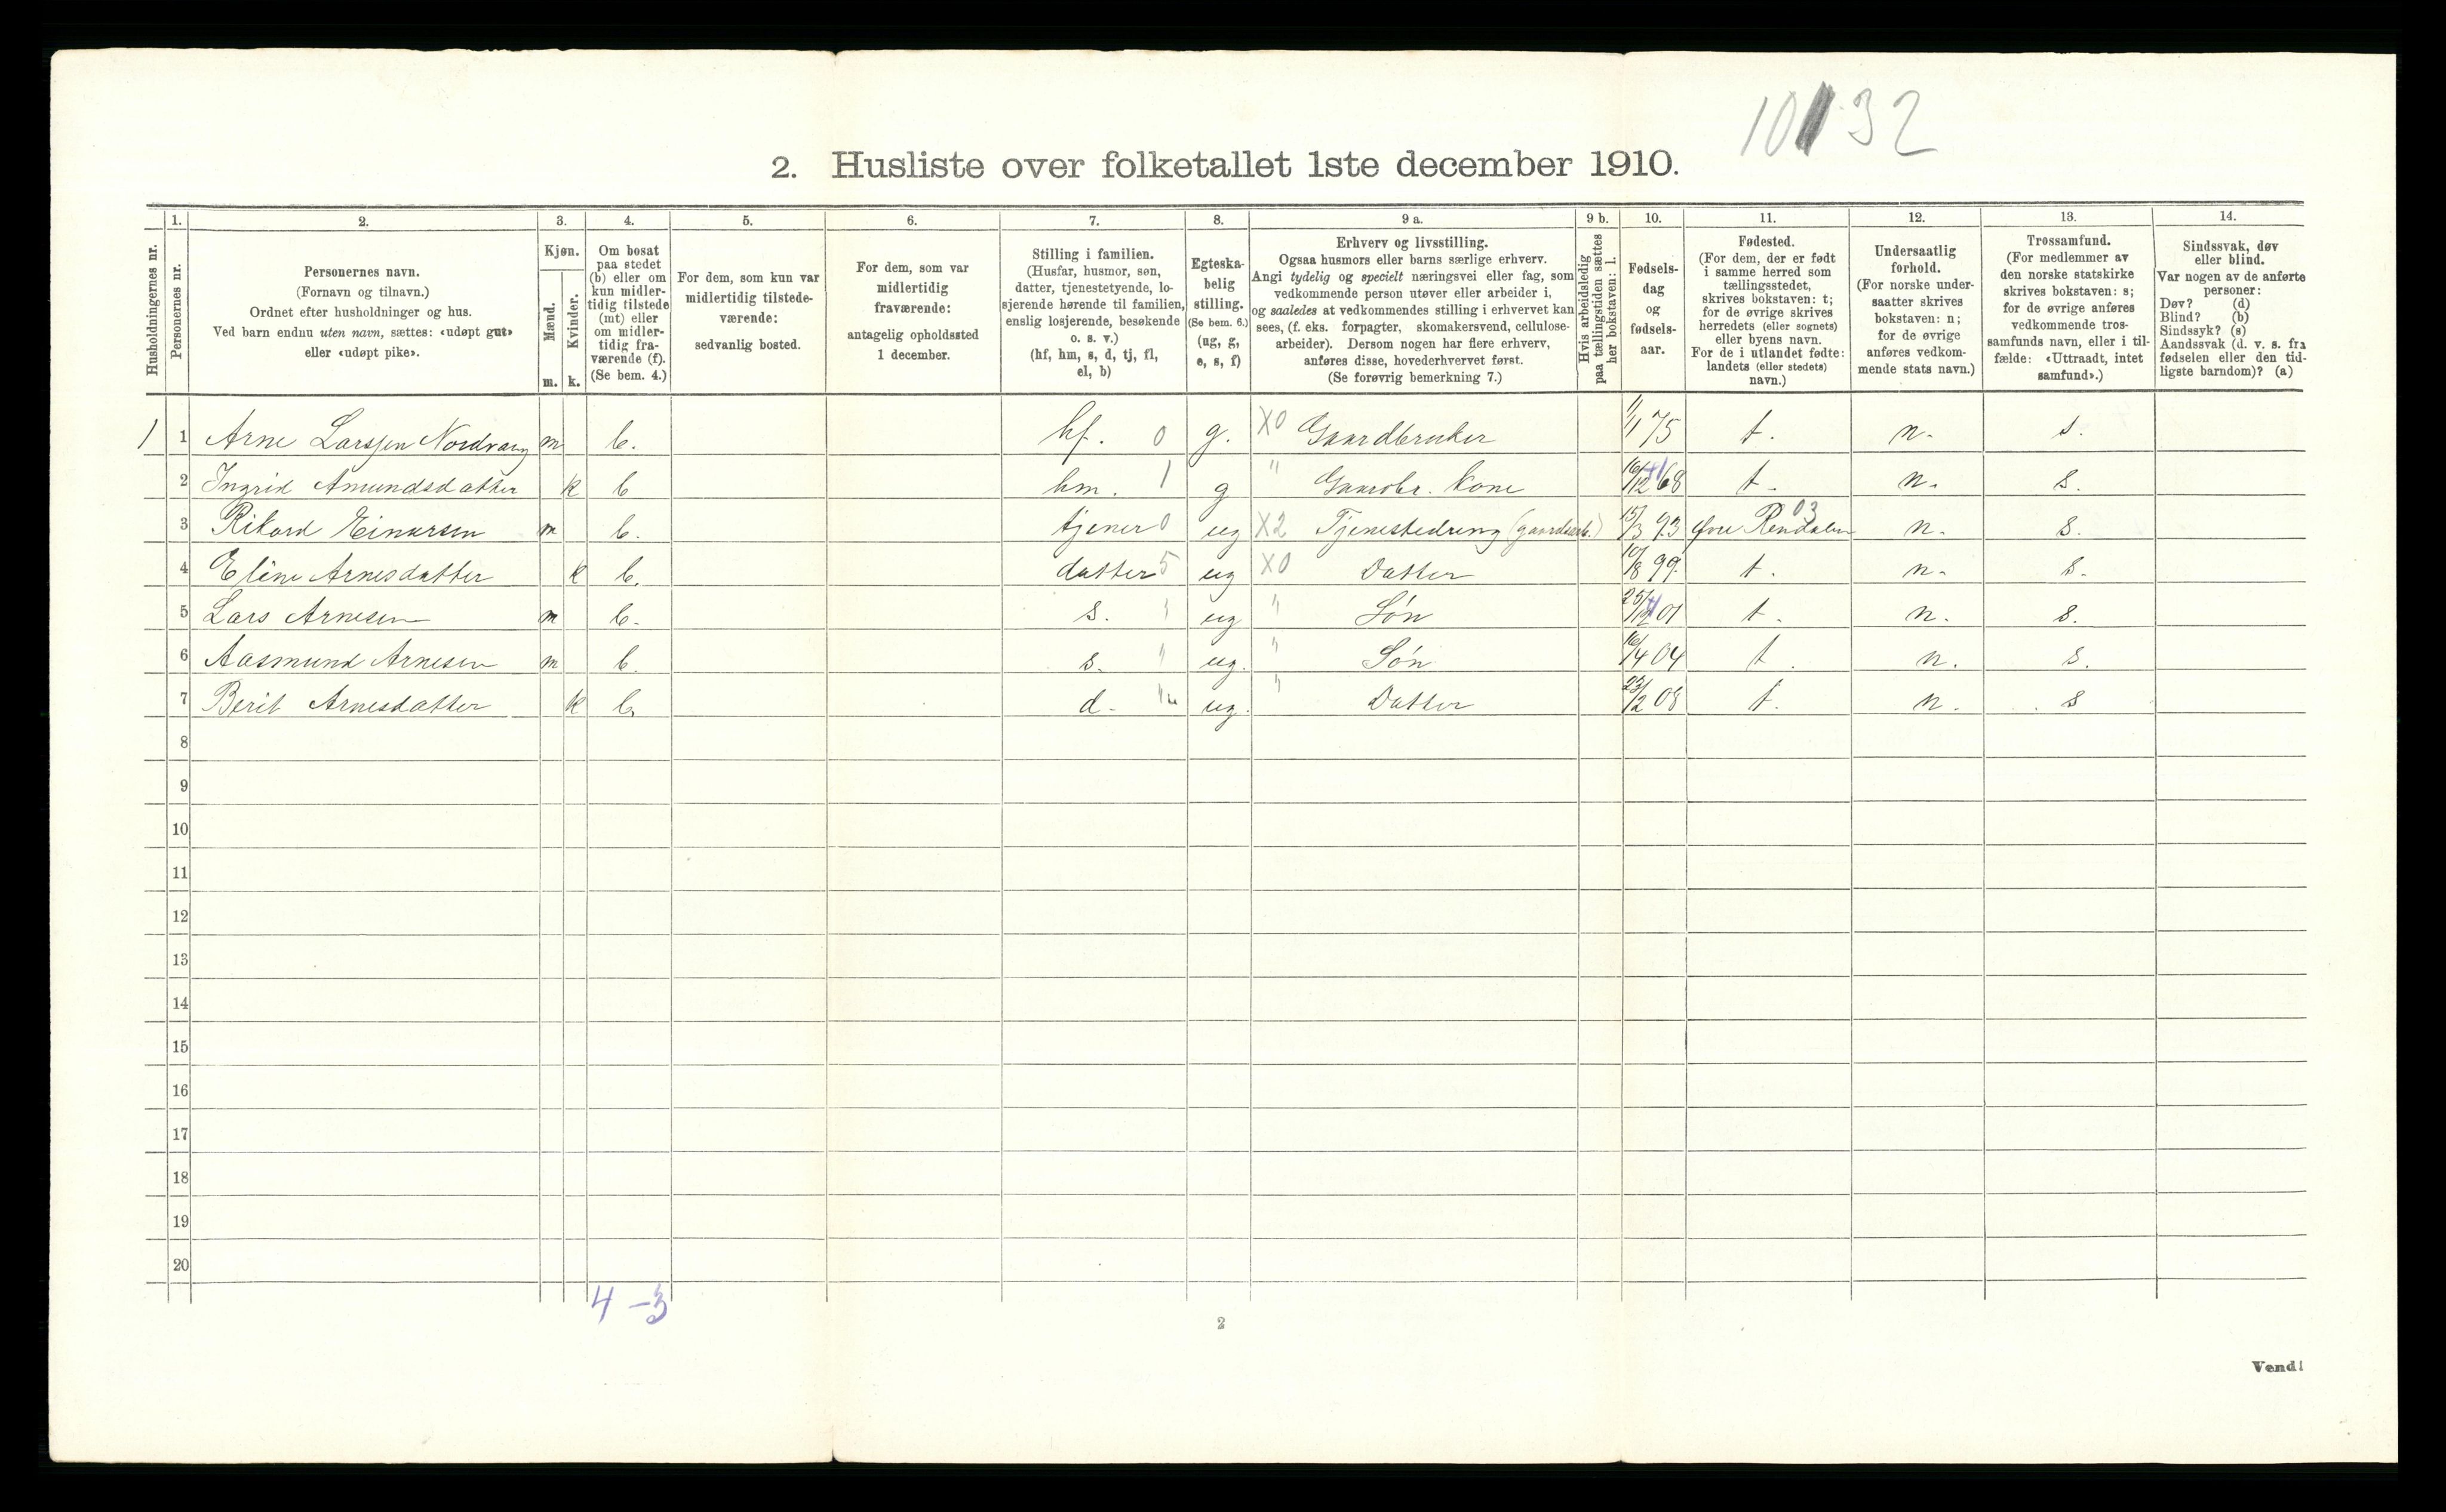 10 32
2. Husliste over folketallet 1ste december 1910.
1. 2. 3. 4. 5. 6. 7. 8. 9 a. 9 b. 10. 11. 12. 13. 14.
Husholdningernes nr.
Personernes nr.
Personernes navn.
(Fornavn og tilnavn.)
Ordnet efter husholdninger og hus.
Ved barn endnu uten navn, sættes: «udøpt gut»
eller «udøpt pike».
Kjøn.
Mænd.
Kvinder.
m. k.
Om bosat
paa stedet
(b) eller om
kun midler-
tidig tilstede
(mt) eller
om midler-
tidig fra-
værende (f).
(Se bem. 4.)
For dem, som kun var
midlertidig tilstede-
værende:
sedvanlig bosted.
For dem, som var
midlertidig
fraværende:
antagelig opholdssted
1 december.
Stilling i familien.
(Husfar, husmor, søn,
datter, tjenestetyende, lo-
sjerende hørende til familien,
enslig losjerende, besøkende
o. s. v.)
(hf, hm, s, d, tj, fl,
el, b)
Egteska-
belig
stilling.
(Se bem. 6.)
(ug, g,
e, s, f)
Erhverv og livsstilling.
Ogsaa husmors eller barns særlige erhverv.
Angi tydelig og specielt næringsvei eller fag, som
vedkommende person utøver eller arbeider i,
og saaledes at vedkommendes stilling i erhvervet kan
sees, (f. eks. forpagter, skomakersvend, cellulose-
arbeider). Dersom nogen har flere erhverv,
anføres disse, hovederhvervet først.
(Se forøvrig bemerkning 7.)
Hvis arbeidsledig
paa tællingstiden sættes
her bokstaven: l.
Fødsels-
dag
og
fødsels-
aar.
Fødested.
(For dem, der er født
i samme herred som
tællingsstedet,
skrives bokstaven: t;
for de øvrige skrives
herredets (eller sognets)
eller byens navn.
For de i utlandet fødte:
landets (eller stedets)
navn.)
Undersaatlig
forhold.
(For norske under-
saatter skrives
bokstaven: n;
for de øvrige
anføres vedkom-
mende stats navn.)
Trossamfund.
(For medlemmer av
den norske statskirke
skrives bokstaven: s;
for de øvrige anføres
vedkommende tros-
samfunds navn, eller i til-
fælde: «Uttraadt, intet
samfund».)
Sindssvak, døv
eller blind.
Var nogen av de anførte
personer:
Døv? (d)
Blind? (b)
Sindssyk? (s)
Aandssvak (d. v. s. fra
fødselen eller den tid-
ligste barndom)? (a)
1 1 Arne Larssen Nordvang m b. hf. 0 g. X0 Gaardbruker 1/1 75 t. n. s.
2 Ingrid Amundsdatter k b hm. 1 g " Gaardbr. kone 16/12 68 t. n. s.
3 Rikard Einarsen m b. tjener 0 ug X2 Tjenestedreng (gaardsarb.) 15/3 93 Øvre Rendalen 03 n. s.
4 Eline Arnesdatter k b. datter 5 ug X0 Datter 10/8 99. t. n. s.
5 Lars Arnesen m b. s. " ug " Søn 25/12 01 t. n. s.
6 Aasmund Arnesen m b. s. " ug. " Søn 16/4 04 t. n. s.
7 Berit Arnesdatter k b. d. " ug. " Datter 23/2 08 t. n. s
8
9
10
11
12
13
14
15
16
17
18
19
20
4 - 3
2
Vend!